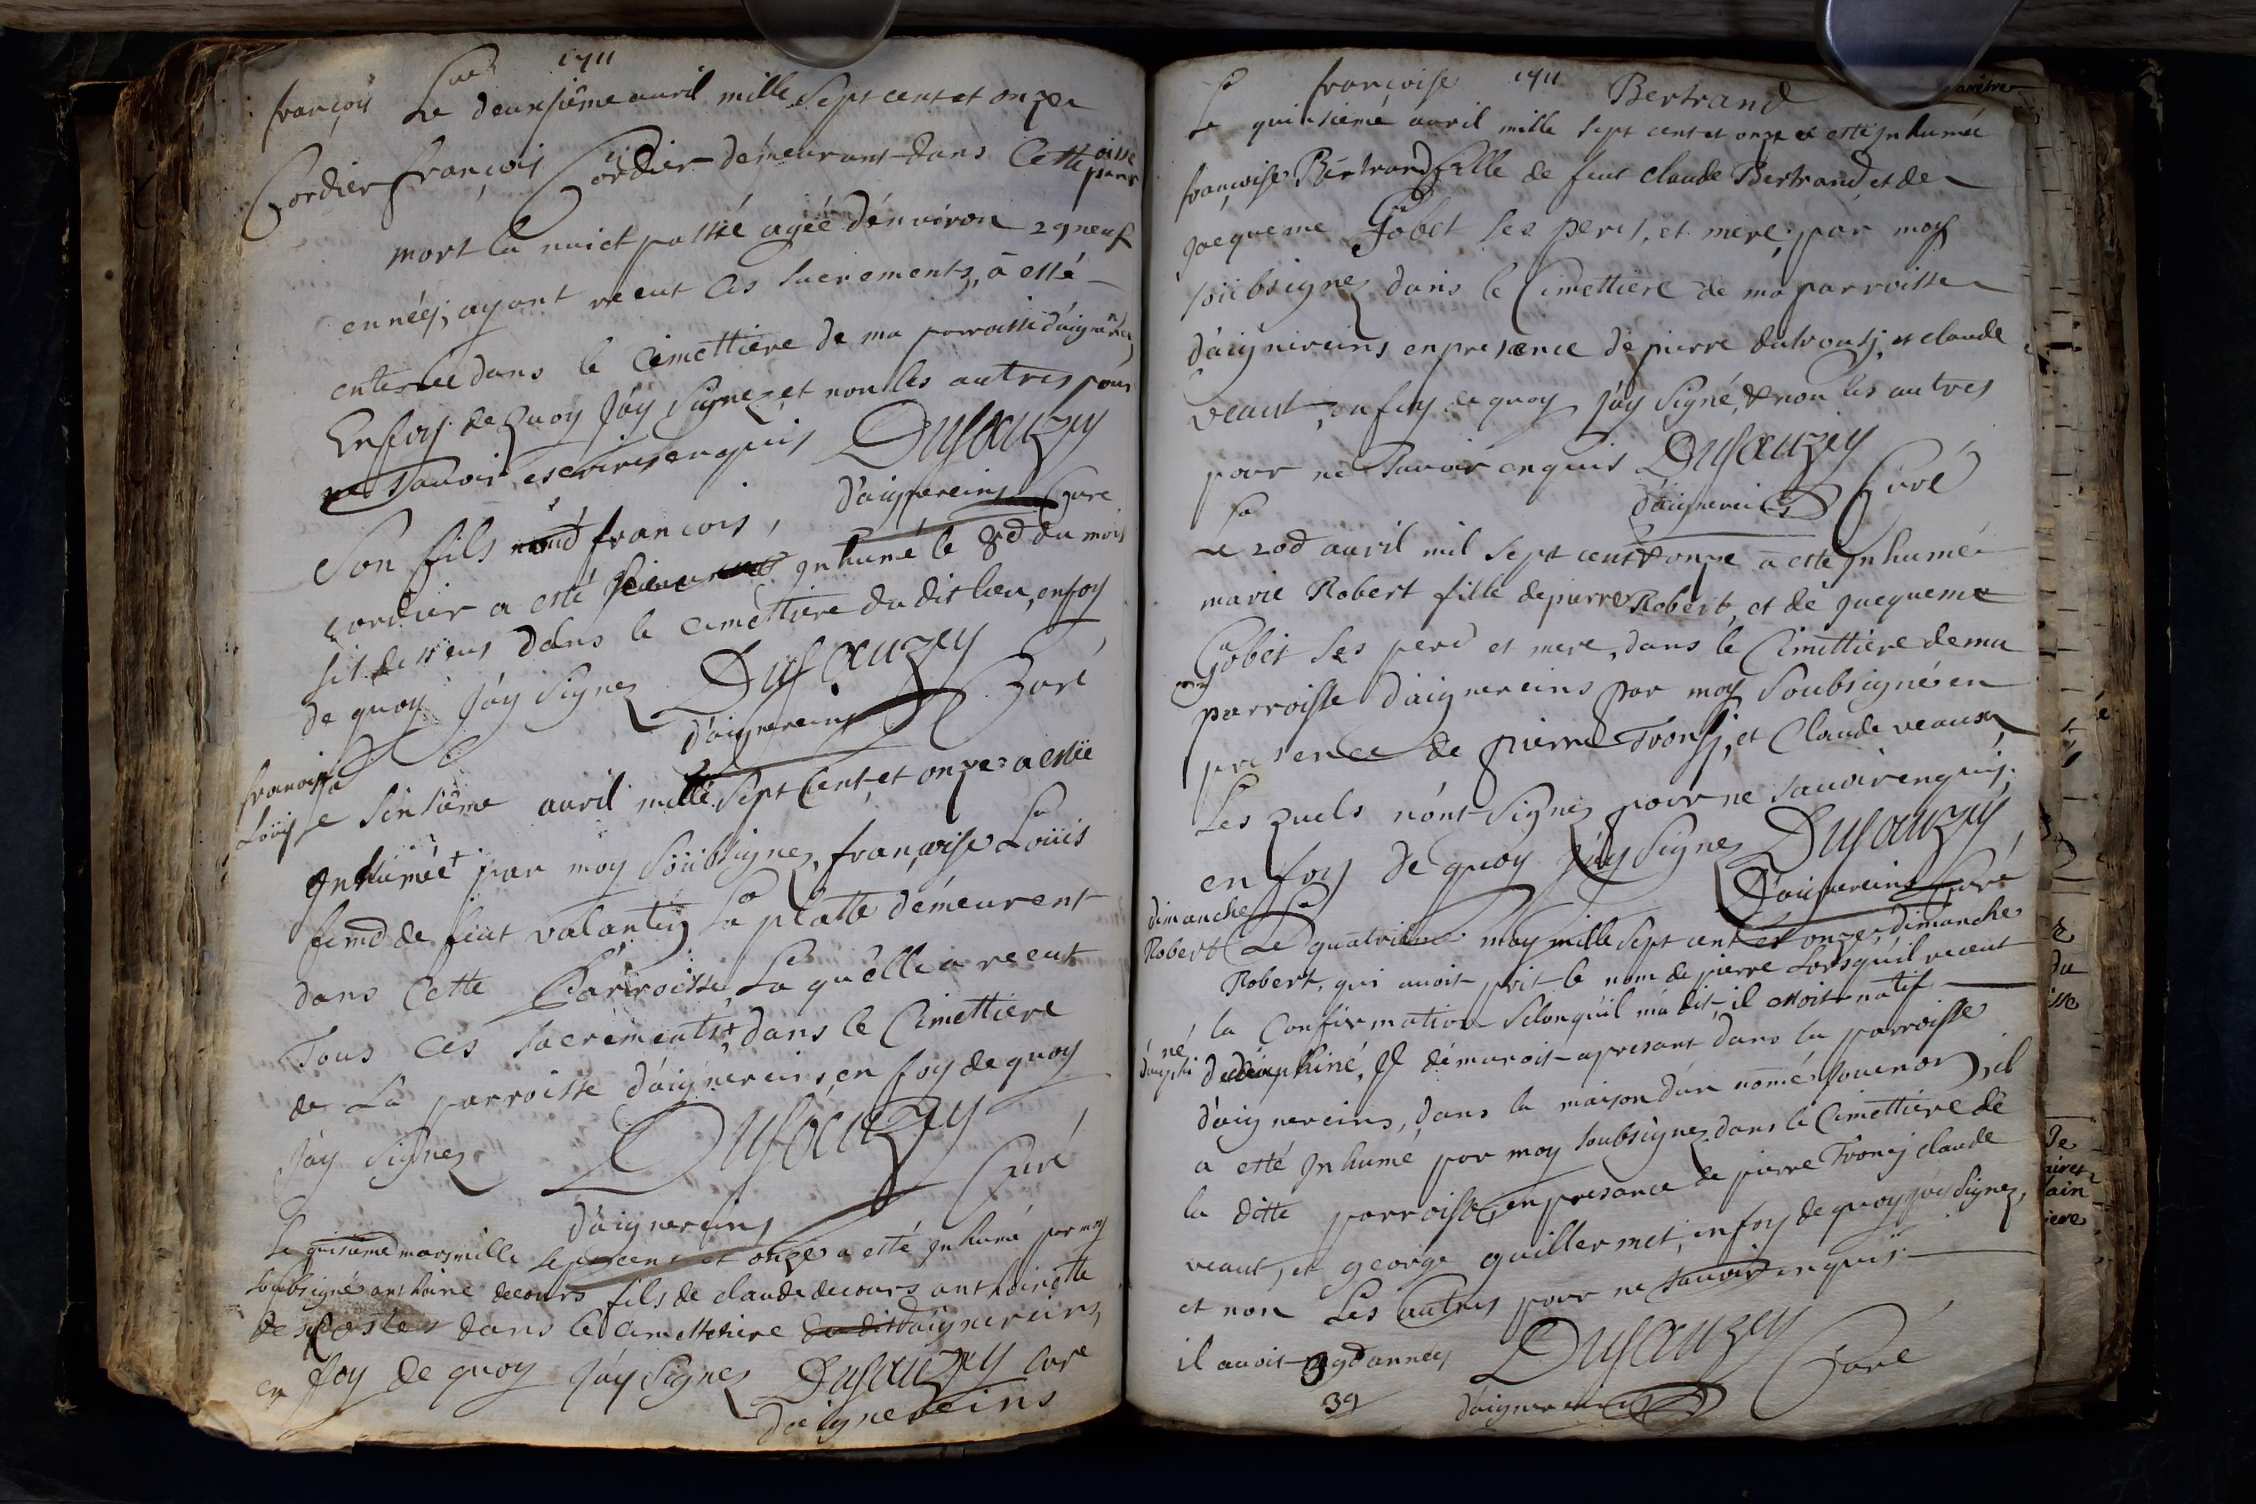 1711
françois
Le deuxsiéme auril mille Sept cent et onze
Cordier françois Cordier démeurant dans Cette paroisse
mort la nuict passée agéé dénuiron 29 neuf
ennéés, ayant receut ces sacrements, à esté
enterrée dans le Cimettiere de ma parroisse d'aignereins
En foy de Quoy J'ay Signez et non les autres pour
ne sauoir escrires enquis Dusauzey
d'aignereins Curé
Son fils françois
cordier a esté Inhumé le 8d du mois
sit dessus dans le cimettiere du dit lieu, en foy
de quoy J'ay Signez Dusauzey
d'aignereins Curé
françoise
Loüis Le Sinsiéme auril mille Sept Cent, et onze a estée
Inhumée par moy Soubsignez, françoise Loüis
femd de feut valantin La platte démeurent
dans Cette Parroisse La quelle a receut
Tous Ces Sacréments, dans le Cimettiere
de La parroisse d'aignereins, en foy de quoy
J'ay Signez Dusauzey
d'aignereins Curé
Le mars mille sept cent et onze a esté Inhumé par moy
soubsigné anthoine decours fils de claude decours anthoinette
dans le Cimettiere d'aignereins,
en foy de quoy J'ay Signez Dusauzey Curé
d'aignereins
françoise 1711 Bertrand
Le quinsiémé auril mille sept cent et onze a esté Inhumée
françoise Bertrand fille de feut Claude Bertrand et de
Jacqueme Gobet ses peres, et mere, par moy
soubsignez dans le Cimettiere de ma parroisse
d'aignereins en presence de pierre et claude
veaut, en foy de quoy J'ay Signé, & non les autres
pour ne Sauoir enquis Dusauzey
d'aignereins Curé
Le 20d auril mil Sept cent & onze a esté Inhumée
marie Robert fille de pierre Robert, et de Jacqueme
Gobet ses pere et mere, dans le Cimettiere de ma
parroisse d'aignereins par moy Soubsigné en
presence de pierre Tronsj, et Claude veaux,
Les quels n'ont Signez pour ne sauoir enquis,
en foy de quoy J'ay Signez Dusauzey
d'aignereins Curé
dimanche
Robert Le quatriéme may mille Sept cent et onze, dimanche
Robert, qui auoit prit le nom de pierre Lorsqu'il receut
la Confirmation Selon qu'il m'a dit, il estoit natif
de dauphiné, Il démuroit apresant dans la parroisse
d'aignereins, dans la maison d'un nomé souenon, il
a esté Inhumé par moy soubsignez dans le Cimettiere de
la ditte parroisse, en presance de pierre Tronsj claude
veaut, et george guillermet, en foy de quoy j'ay Signez,
et non Les autres pour ne sauoir enquis
il auoit 39d annéés Dusauzey
39 d'aignereins Curé